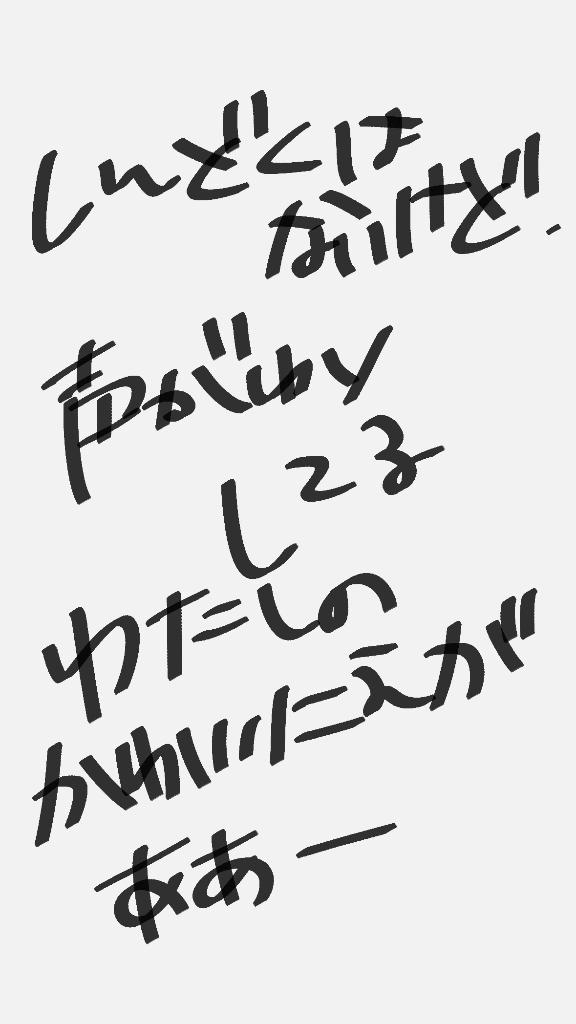 しんどくは
ないけど.
声がゆく
してる
わたしの
かわいいこえが
ああー